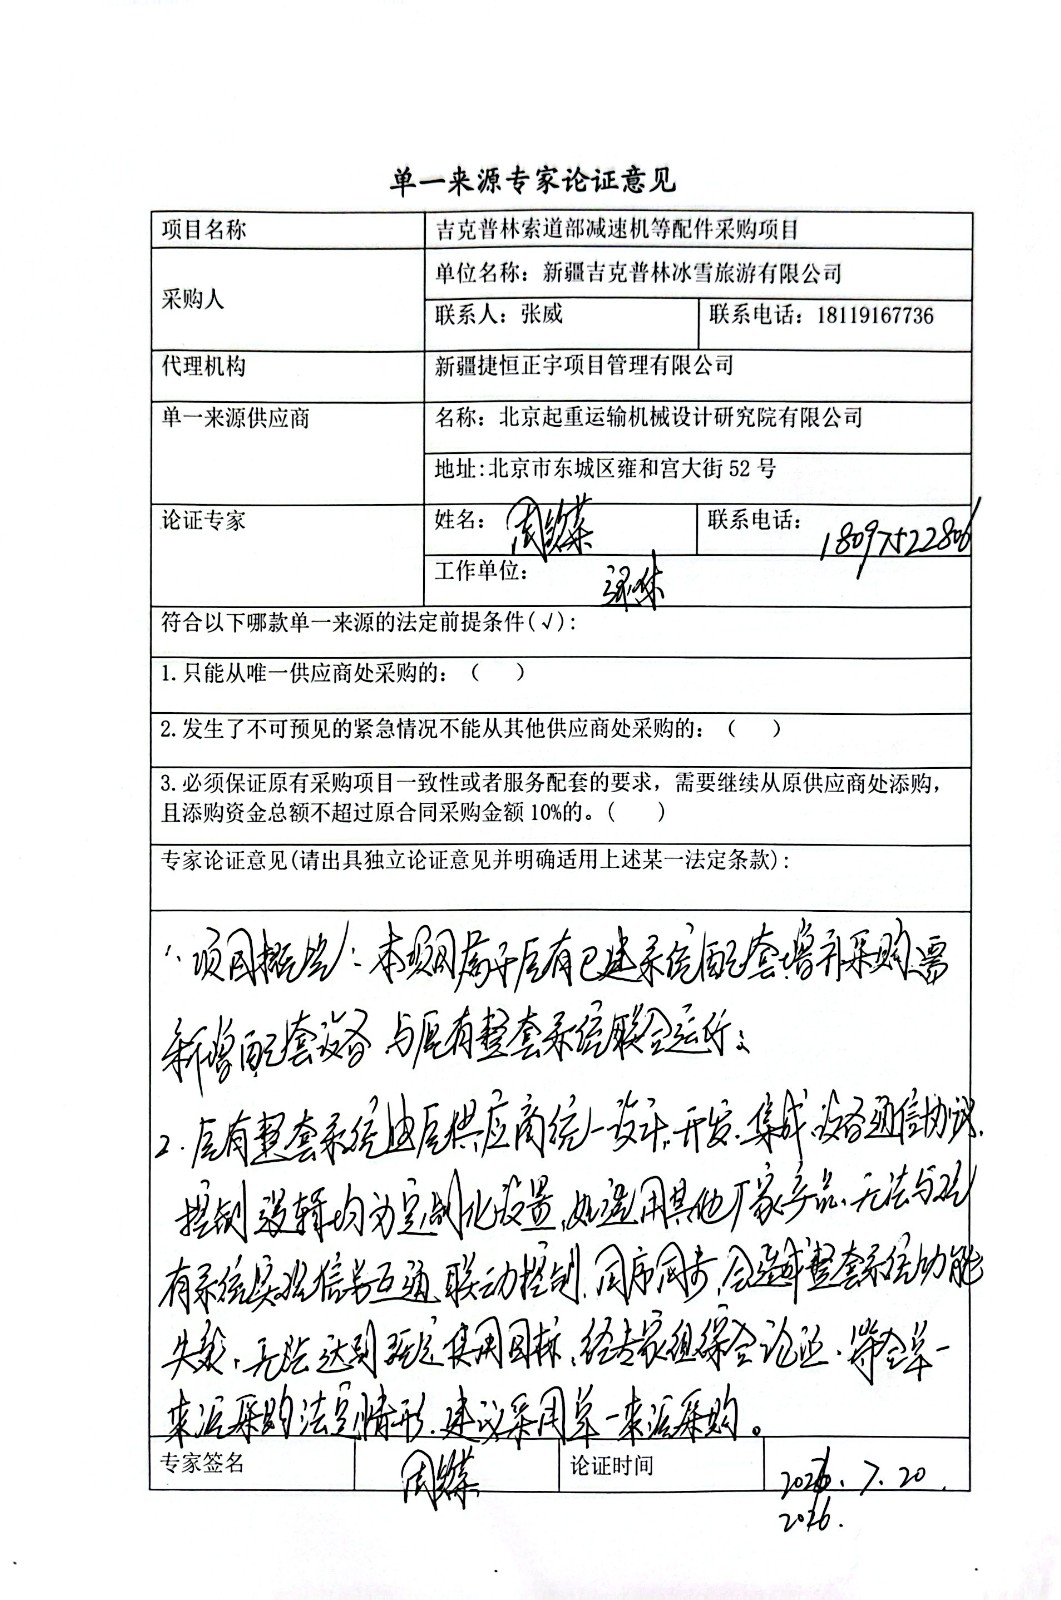 单一来源专家论证意见
项目名称 吉克普林索道部减速机等配件采购项目
采购人 单位名称：新疆吉克普林冰雪旅游有限公司
联系人：张威 联系电话：18119167736
代理机构 新疆捷恒正宇项目管理有限公司
单一来源供应商 名称：北京起重运输机械设计研究院有限公司
地址:北京市东城区雍和宫大街 52 号
论证专家 姓名： 周 联系电话： 18097522806
工作单位：
符合以下哪款单一来源的法定前提条件(√)：
1.只能从唯一供应商处采购的：（ ）
2.发生了不可预见的紧急情况不能从其他供应商处采购的：（ ）
3.必须保证原有采购项目一致性或者服务配套的要求，需要继续从原供应商处添购，
且添购资金总额不超过原合同采购金额 10%的。（ ）
专家论证意见(请出具独立论证意见并明确适用上述某一法定条款)：
1、项目概览：本项目属于原有已建系统配套增补采购，需
新增配套设备与原有整套系统联合运行；
2. 原有整套系统由原供应商统一设计、开发、集成，设备通信协议、
控制逻辑均为定制化设置，如选用其他厂家产品、无法与现
有系统实现信号互通、联动控制、同序同步，会造成整套系统功能
失效，无法达到既定使用目标，经专家组综合论证，符合单一
来源采购法定情形，建议采用单一来源采购。
专家签名 周 论证时间 2026. 7. 20
2026.